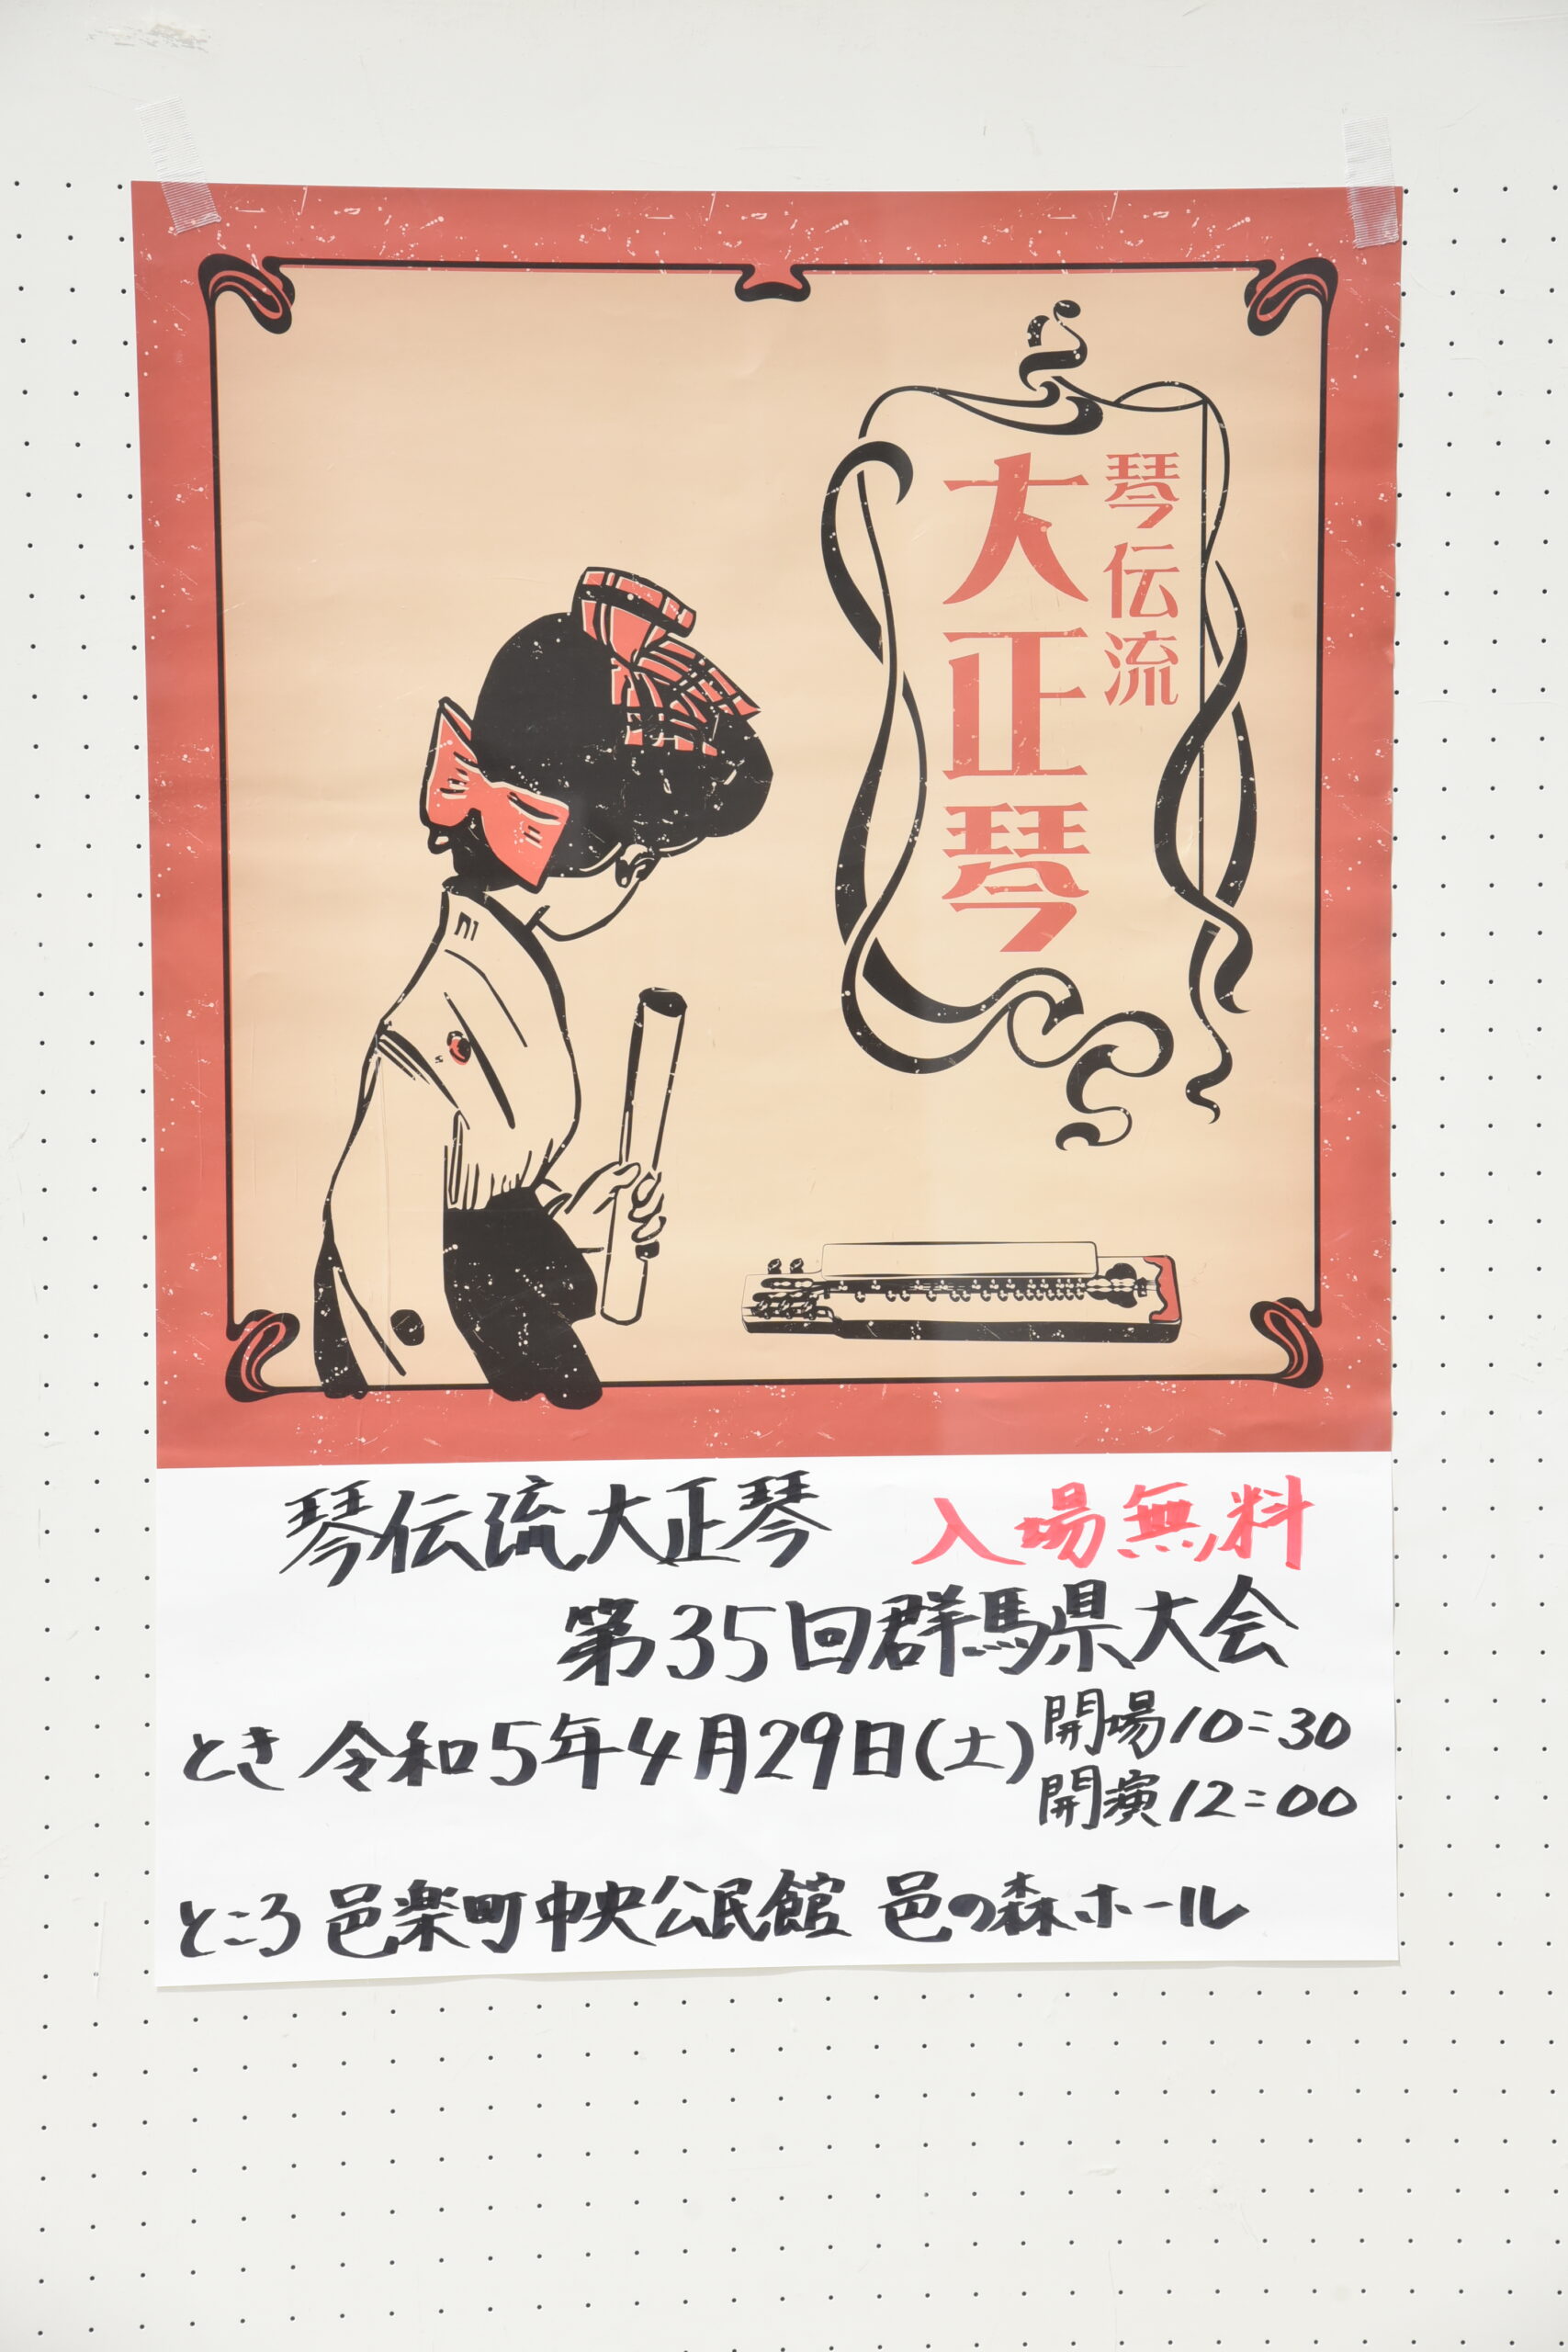 琴伝流
大正琴
琴伝流大正琴 入場無料
第35回群馬県大会
とき 令和5年4月29日(土) 開場10:30
開演12:00
ところ 邑楽町中央公民館 邑の森ホール